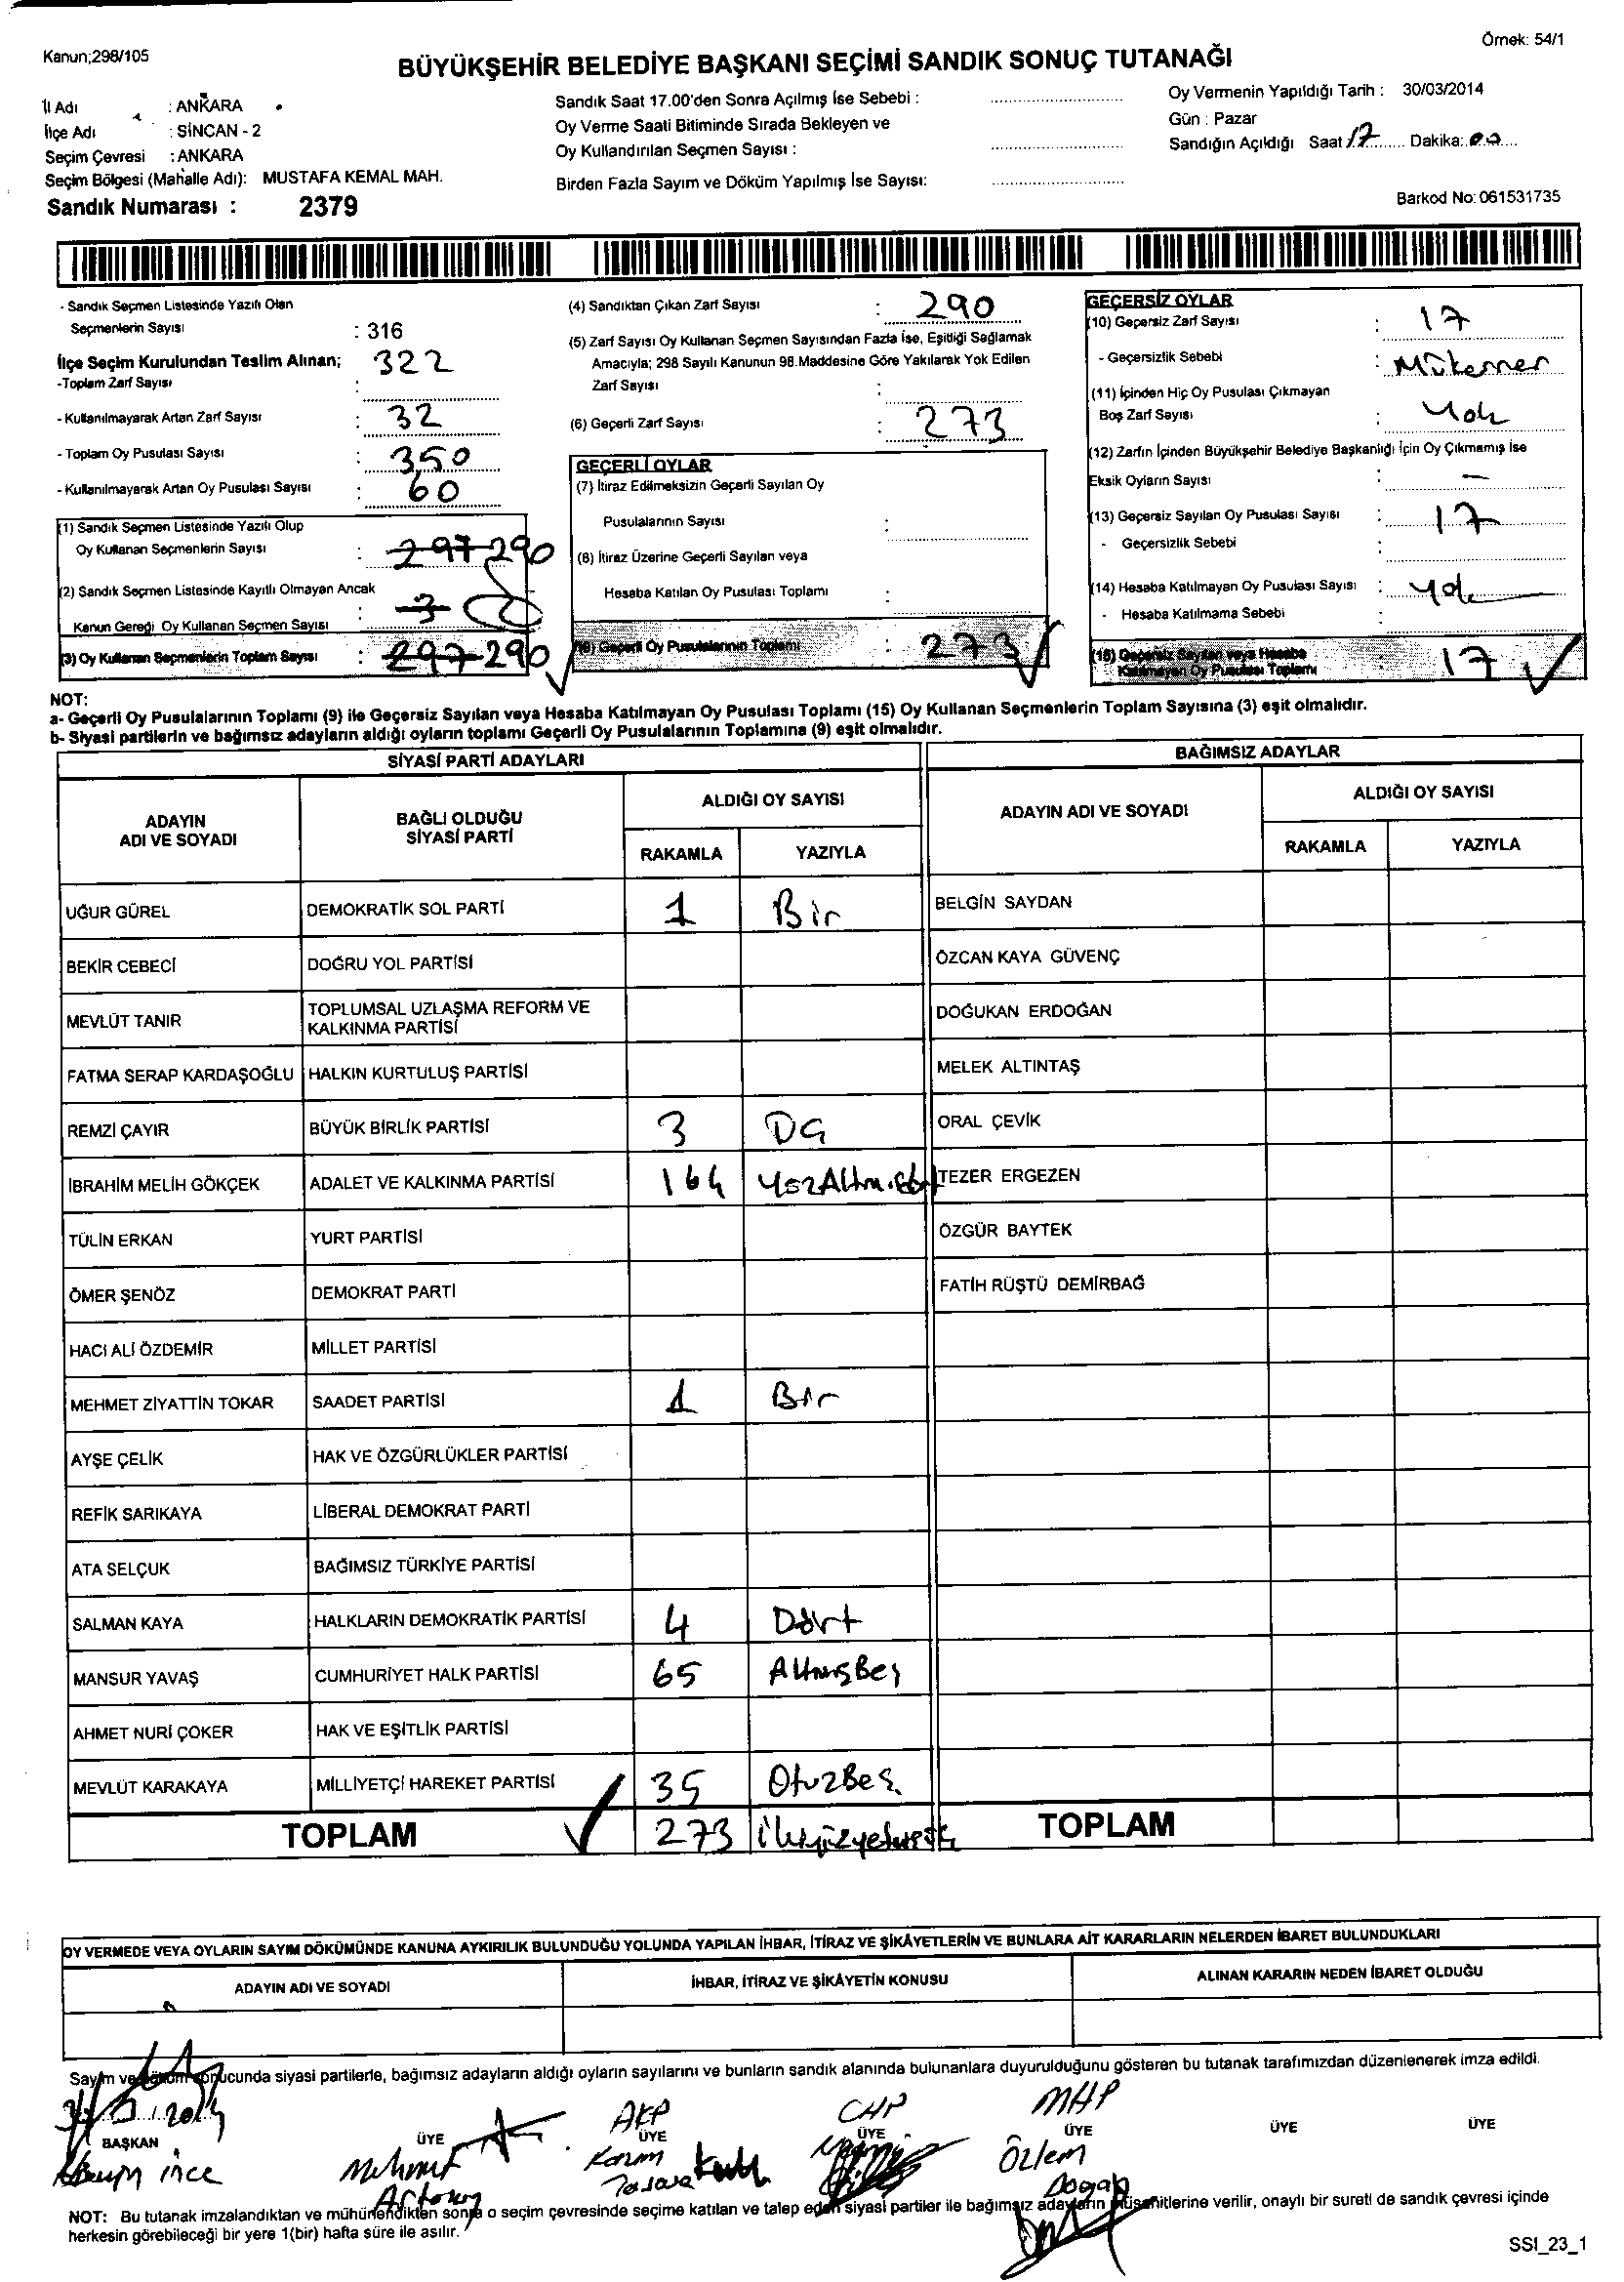 Örnek: 54/1
Kanun;298/105
BÜYÜKŞEHİR BELEDİYE BAŞKANI SEÇİMİ SANDIK SONUÇ TUTANAĞI
İl Adı : ANKARA
İlçe Adı : SİNCAN - 2
Seçim Çevresi : ANKARA
Seçim Bölgesi (Mahalle Adı): MUSTAFA KEMAL MAH.
Sandık Numarası : 2379
Sandık Saat 17.00'den Sonra Açılmış İse Sebebi :
Oy Verme Saati Bitiminde Sırada Bekleyen ve
Oy Kullandırılan Seçmen Sayısı :
Birden Fazla Sayım ve Döküm Yapılmış İse Sayısı:
Oy Vermenin Yapıldığı Tarih : 30/03/2014
Gün : Pazar
Sandığın Açıldığı Saat 17 Dakika: 00
Barkod No: 061531735
- Sandık Seçmen Listesinde Yazılı Olan
Seçmenlerin Sayısı : 316
İlçe Seçim Kurulundan Teslim Alınan; 322
-Toplam Zarf Sayısı :
- Kullanılmayarak Artan Zarf Sayısı : 32
- Toplam Oy Pusulası Sayısı : 350
- Kullanılmayarak Artan Oy Pusulası Sayısı : 60
(1) Sandık Seçmen Listesinde Yazılı Olup
Oy Kullanan Seçmenlerin Sayısı : 297 290
(2) Sandık Seçmen Listesinde Kayıtlı Olmayan Ancak
Kanun Gereği Oy Kullanan Seçmen Sayısı : 3
(3) Oy Kullanan Seçmenlerin Toplam Sayısı : 297 290
(4) Sandıktan Çıkan Zarf Sayısı : 290
(5) Zarf Sayısı Oy Kullanan Seçmen Sayısından Fazla İse, Eşitliği Sağlamak
Amacıyla; 298 Sayılı Kanunun 98.Maddesine Göre Yakılarak Yok Edilen
Zarf Sayısı :
(6) Geçerli Zarf Sayısı : 273
GEÇERLİ OYLAR
(7) İtiraz Edilmeksizin Geçerli Sayılan Oy
Pusulalarının Sayısı :
(8) İtiraz Üzerine Geçerli Sayılan veya
Hesaba Katılan Oy Pusulası Toplamı :
(9) Geçerli Oy Pusulalarının Toplamı : 273
GEÇERSİZ OYLAR
(10) Geçersiz Zarf Sayısı : 17
- Geçersizlik Sebebi : Mükerrer
(11) İçinden Hiç Oy Pusulası Çıkmayan
Boş Zarf Sayısı : Yok
(12) Zarfın İçinden Büyükşehir Belediye Başkanlığı İçin Oy Çıkmamış İse
Eksik Oyların Sayısı : —
(13) Geçersiz Sayılan Oy Pusulası Sayısı : 17
- Geçersizlik Sebebi :
(14) Hesaba Katılmayan Oy Pusulası Sayısı : Yok
- Hesaba Katılmama Sebebi :
(15) Geçersiz Sayılan veya Hesaba
Katılmayan Oy Pusulası Toplamı : 17
NOT:
a- Geçerli Oy Pusulalarının Toplamı (9) ile Geçersiz Sayılan veya Hesaba Katılmayan Oy Pusulası Toplamı (15) Oy Kullanan Seçmenlerin Toplam Sayısına (3) eşit olmalıdır.
b- Siyasi partilerin ve bağımsız adayların aldığı oyların toplamı Geçerli Oy Pusulalarının Toplamına (9) eşit olmalıdır.
SİYASİ PARTİ ADAYLARI
ADAYIN ADI VE SOYADI BAĞLI OLDUĞU SİYASİ PARTİ ALDIĞI OY SAYISI
RAKAMLA YAZIYLA
UĞUR GÜREL DEMOKRATİK SOL PARTİ 1 Bir
BEKİR CEBECİ DOĞRU YOL PARTİSİ
MEVLÜT TANIR TOPLUMSAL UZLAŞMA REFORM VE KALKINMA PARTİSİ
FATMA SERAP KARDAŞOĞLU HALKIN KURTULUŞ PARTİSİ
REMZİ ÇAYIR BÜYÜK BİRLİK PARTİSİ 3
İBRAHİM MELİH GÖKÇEK ADALET VE KALKINMA PARTİSİ 164
TÜLİN ERKAN YURT PARTİSİ
ÖMER ŞENÖZ DEMOKRAT PARTİ
HACI ALİ ÖZDEMİR MİLLET PARTİSİ
MEHMET ZİYATTİN TOKAR SAADET PARTİSİ 1 Bir
AYŞE ÇELİK HAK VE ÖZGÜRLÜKLER PARTİSİ
REFİK SARIKAYA LİBERAL DEMOKRAT PARTİ
ATA SELÇUK BAĞIMSIZ TÜRKİYE PARTİSİ
SALMAN KAYA HALKLARIN DEMOKRATİK PARTİSİ 4 Dört
MANSUR YAVAŞ CUMHURİYET HALK PARTİSİ 65 AltmışBeş
AHMET NURİ ÇOKER HAK VE EŞİTLİK PARTİSİ
MEVLÜT KARAKAYA MİLLİYETÇİ HAREKET PARTİSİ 35 OtuzBeş
TOPLAM 273
BAĞIMSIZ ADAYLAR
ADAYIN ADI VE SOYADI ALDIĞI OY SAYISI
RAKAMLA YAZIYLA
BELGİN SAYDAN
ÖZCAN KAYA GÜVENÇ
DOĞUKAN ERDOĞAN
MELEK ALTINTAŞ
ORAL ÇEVİK
TEZER ERGEZEN
ÖZGÜR BAYTEK
FATİH RÜŞTÜ DEMİRBAĞ
TOPLAM
OY VERMEDE VEYA OYLARIN SAYIM DÖKÜMÜNDE KANUNA AYKIRILIK BULUNDUĞU YOLUNDA YAPILAN İHBAR, İTİRAZ VE ŞİKÂYETLERİN VE BUNLARA AİT KARARLARIN NELERDEN İBARET BULUNDUKLARI
ADAYIN ADI VE SOYADI İHBAR, İTİRAZ VE ŞİKÂYETİN KONUSU ALINAN KARARIN NEDEN İBARET OLDUĞU
Sayım ve döküm sonucunda siyasi partilerle, bağımsız adayların aldığı oyların sayılarını ve bunların sandık alanında bulunanlara duyurulduğunu gösteren bu tutanak tarafımızdan düzenlenerek imza edildi.
2014 AKP CHP MHP
BAŞKAN ÜYE ÜYE ÜYE ÜYE ÜYE ÜYE
ince Mehmet Özlem
Doğan
NOT: Bu tutanak imzalandıktan ve mühürlendikten sonra o seçim çevresinde seçime katılan ve talep eden siyasi partiler ile bağımsız adayların müşahitlerine verilir, onaylı bir sureti de sandık çevresi içinde
herkesin görebileceği bir yere 1(bir) hafta süre ile asılır.
SSI_23_1